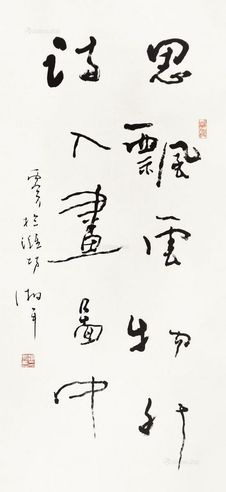 思飄雲物外
詩入畫圖中
於濰坊